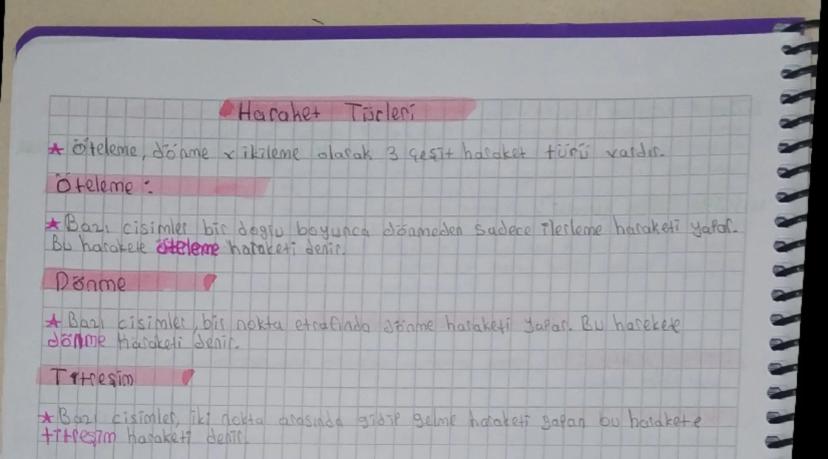 Haraket Türleri
★ Öteleme, dönme v ikileme olarak 3 çeşit haraket türü vardır.
Öteleme :
★ Bazı cisimler bir dogru boyunca dönmeden sadece ilerleme haraketi yapar.
Bu harakete öteleme haraketi denir.
Dönme
★ Bazı cisimler, bir nokta etrafında dönme haraketi yapar. Bu harekete
dönme haraketi denir.
Titreşim
★ Bazı cisimler, iki nokta arasında gidip gelme haraketi yapan bu harakete
titreşim haraketi denir.